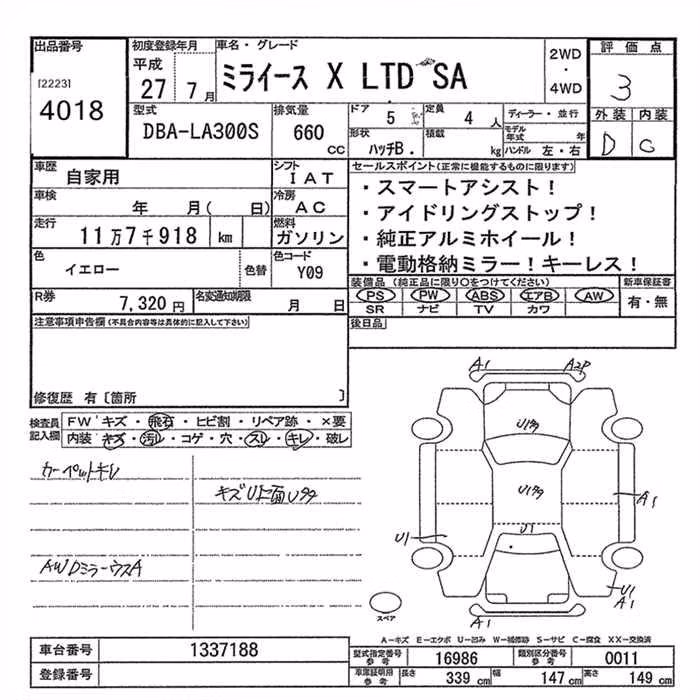 出品番号 初度登録年月 車名・グレード 評価点
[2223] 平成 2WD
4018 27 7月 ミライース X LTD SA ・ 3
4WD
型式 排気量 ドア 5 定員 4 人 ディーラー・並行 外装 内装
DBA-LA300S 660 cc 形状 ハッチB. 積載 kg モデル年式 年 D C
ハンドル 左・右
車歴 自家用 シフト IAT セールスポイント(正常に機能するものに限ります)
車検 年 月( 日) 冷房 AC ・スマートアシスト!
走行 11万7千918 km 燃料 ガソリン ・アイドリングストップ!
色 イエロー 色替 色コード Y09 ・純正アルミホイール!
・電動格納ミラー!キーレス!
R券 7,320円 名変通知期限 月 日 装備品(純正品に限り○をつけてください) 新車保証書
PS PW ABS エアB AW 有・無
SR ナビ TV カワ
注意事項申告欄(不具合内容等は具体的に記入して下さい) 後日品
修復歴 有〔箇所 〕
検査員記入欄 FWキズ・飛石・ヒビ割・リペア跡・×要
内装 キズ・汚レ・コゲ・穴・スレ・キレ・破レ
カーペットキレ
キズU上面U多
AWDミラーウスA
A1 A2P
U1多
U1多
A1
U1
U1
U1
A1
A1
スペア
A−キズ E−エクボ U−凹み W−補修跡 S−サビ C−腐食 XX−交換済
車台番号 1337188 型式指定番号 参考 16986 類別区分番号 参考 0011
登録番号 車庫証明用 参考 長さ 339 cm 幅 147 cm 高さ 149 cm